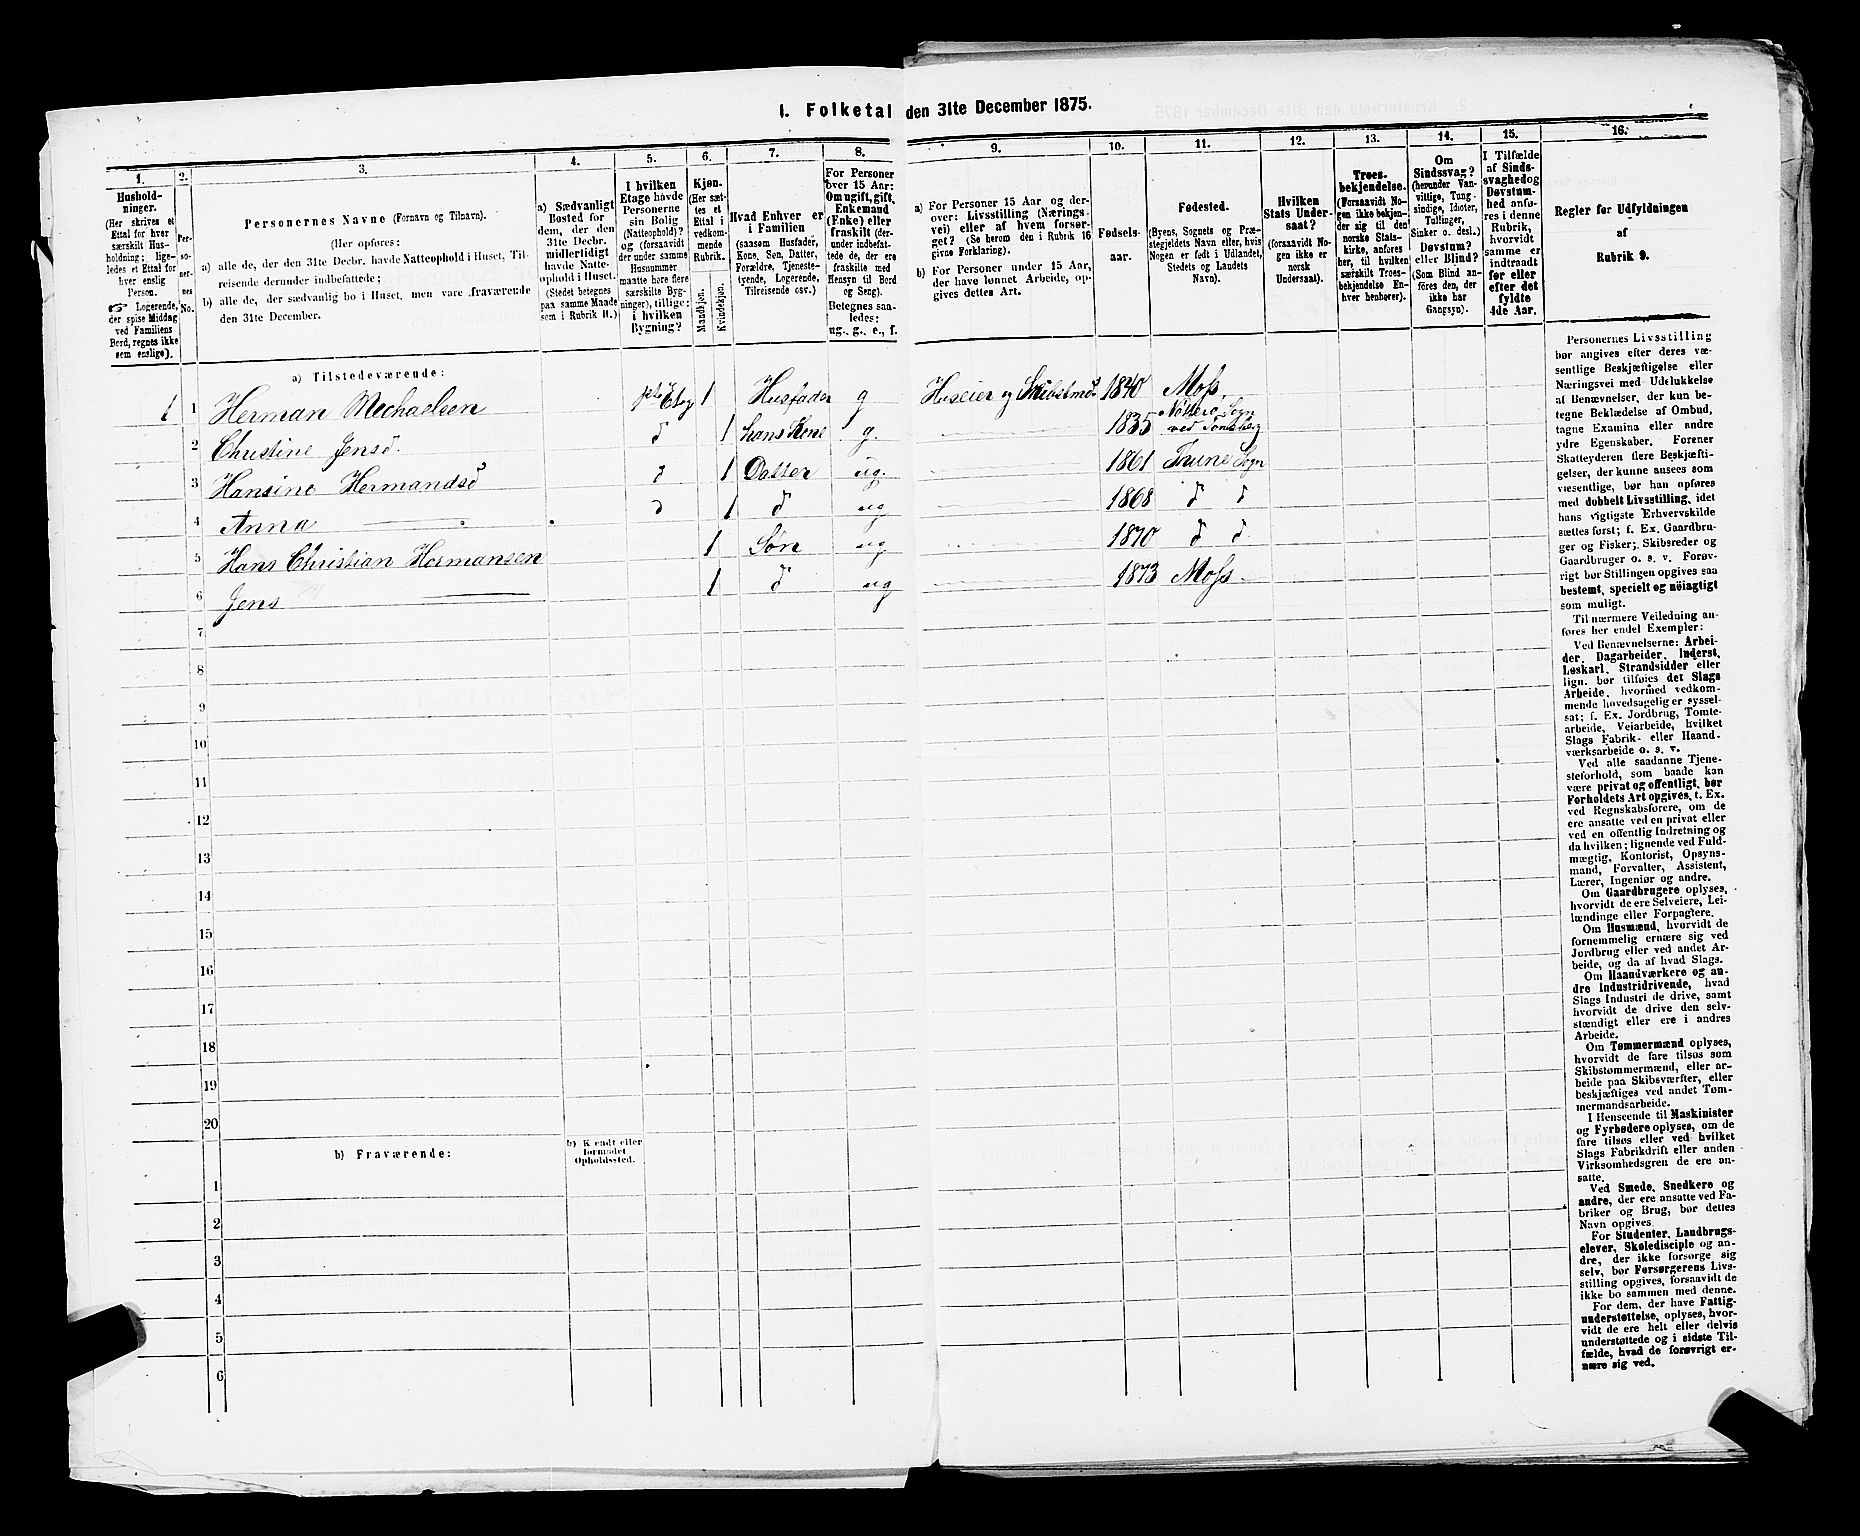 1. Folketal den 31te December 1875.
1.
Hushold-
ninger.
(Her skrives et
Ettal for hver
særskilt Hus-
holdning; lige-
ledes et Ettal for
hver enslig
Person.
☞ Logerende,
der spise Middag
ved Familiens
Bord, regnes ikke
som enslige).
2.
Per-
so-
ner-
nes
No.
3.
Personernes Navne (Fornavn og Tilnavn).
(Her opføres:
a) alle de, der den 31te Decbr. havde Natteophold i Huset, Til-
reisende derunder indbefattede;
b) alle de, der sædvanlig bo i Huset, men vare fraværende
den 31te December.
4.
a) Sædvanligt
Bosted for
dem, der den
31te Decbr.
midlertidigt
havde Natte-
ophold i Huset.
(Stedet betegnes
paa samme Maade
som i Rubrik 11.)
5.
I hvilken
Etage havde
Personerne
sin Bolig
(Natteophold)?
og (forsaavidt
der under samme
Husnummer
maatte høre flere
særskilte Byg-
ninger), tillige:
i hvilken
Bygning?
6.
Kjøn.
(Her sæt-
tes et
Ettal i
vedkom-
mende
Rubrik.
Mandkjøn.
Kvindekjøn.
7.
Hvad Enhver er
i Familien
(saasom Husfader,
Kone, Søn, Datter,
Forældre, Tjeneste-
tyende, Logerende,
Tilreisende osv.)
8.
For Personer
over 15 Aar:
Om ugift, gift,
Enkemand
(Enke) eller
fraskilt (der-
under indbefat-
tede de, der ere
fraskilte med
Hensyn til Bord
og Seng).
Betegnes saa-
ledes:
ug., g., e., f.
9.
a) For Personer 15 Aar og der-
over: Livsstilling (Nærings-
vei) eller af hvem forsør-
get? (Se herom den i Rubrik 16
givne Forklaring).
b) For Personer under 15 Aar,
der have lønnet Arbeide, op-
gives dettes Art.
10.
Fødsels-
aar.
11.
Fødested.
(Byens, Sognets og Præ-
stegjeldets Navn eller, hvis
Nogen er født i Udlandet,
Stedets og Landets
Navn).
12.
Hvilken
Stats Under-
saat?
(forsaavidt No-
gen ikke er
norsk
Undersaat).
13.
Troes-
bekjendelse.
(Forsaavidt No-
gen ikke bekjen-
der sig til den
norske Stats-
kirke, anføres
her, til hvilken
særskilt Troes-
bekjendelse En-
hver henhører).
14.
Om
Sindssvag?
(herunder Van-
vittige, Tung-
sindige, Idioter,
Tullinger,
Sinker o. desl.)
Døvstum?
eller Blind?
(Som Blind an-
føres den, der
ikke har
Gangsyn).
15.
I Tilfælde
af Sinds-
svaghed og
Døvstum-
hed anfø-
res i denne
Rubrik,
hvorvidt
samme er
indtraadt
før eller
efter det
fyldte
4de Aar.
16.
Regler for Udfyldningen
af
Rubrik 9.
a) Tilstedeværende:
1 1 Herman Mechaelsen pte Etag 1 Husfader g Huseier og 1840 Moss,
2 Christine Jensd. d 1 hans Kone g. 1835 Nøttero Sogn
ved Tonsberg
3 Hansine Hermandsd d 1 Datter ug. 1861 Trune Sogn
4 Anna d 1 d ug 1868 d d
5 Hans Christian Hermansen 1 Søn ug 1870 d d
6 Jens 1 d ug 1873 Moss
7
8
9
10
11
12
13
14
15
16
17
18
19
20
b) Fraværende:
b) Kjendt eller
formodet
Opholdssted.
1
2
3
4
5
6
Personernes Livsstilling
bør angives efter deres væ-
sentlige Beskjæftigelse eller
Næringsvei med Udelukkelse
af Benævnelser, der kun be-
tegne Beklædelse af Ombud,
tagne Examina eller andre
ydre Egenskaber. Forener
Skatteyderen flere Beskjæfti-
gelser, der kunne ansees som
væsentlige, bør han opføres
med dobbelt Livsstilling, idet
hans vigtigste Erhvervskilde
sættes først; f. Ex. Gaardbru-
ger og Fisker; Skibsreder og
Gaardbruger o. s. v. Forøv-
rigt bør Stillingen opgives saa
bestemt, specielt og nöiagtigt
som muligt.
Til nærmere Veiledning an-
føres her endel Exempler:
Ved Benævnelserne: Arbei-
der, Dagarbeider, Inderst,
Løskarl, Strandsidder eller
lign. bør tilføies det Slags
Arbeide, hvormed vedkom-
mende hovedsagelig er syssel-
sat; f. Ex. Jordbrug, Tomte-
arbeide, Veiarbeide, hvilket
Slags Fabrik- eller Haand-
værksarbeide o. s. v.
Ved alle saadanne Tjene-
steforhold, som baade kan
være privat og offentligt, bør
Forholdets Art opgives, t. Ex.
ved Regnskabsførere, om de
ere ansatte ved en privat eller
ved en offentlig Indretning og
da hvilken; lignende ved Fuld-
mægtig, Kontorist, Opsyns-
mand, Forvalter, Assistent,
Lærer, Ingeniør og andre.
Om Gaardbrugere oplyses,
hvorvidt de ere Selveiere, Lei-
lændinge eller Forpagtere.
Om Husmænd, hvorvidt de
fornemmelig ernære sig ved
Jordbrug eller ved andet Ar-
beide, og da af hvad Slags.
Om Haandværkere og an-
dre Industridrivende, hvad
Slags Industri de drive, samt
hvorvidt de drive den selv-
stændigt eller ere i andres
Arbeide.
Om Tømmermænd oplyses,
hvorvidt de fare tilsøs som
Skibstømmermænd, eller ar-
beide paa Skibsværfter, eller
beskjæftiges ved andet Tøm-
mermandsarbeide.
I Henseende til Maskinister
og Fyrbødere oplyses, om de
fare tilsøs eller ved hvilket
Slags Fabrikdrift eller anden
Virksomhedsgren de ere an-
satte.
Ved Smede, Snedkere og
andre, der ere ansatte ved Fa-
briker og Brug, bør dettes
Navn opgives.
For Studenter, Landbrugs-
elever, Skoledisciple og an-
dre, der ikke forsørge sig
selv, bør Forsørgerens Livs-
stilling opgives, forsaavidt de
ikke bo sammen med denne.
For dem, der have Fattig-
understøttelse, oplyses, hvor-
vidt de ere helt eller delvis
understøttede og i sidste Til-
fælde, hvad de forøvrigt er-
nære sig ved.